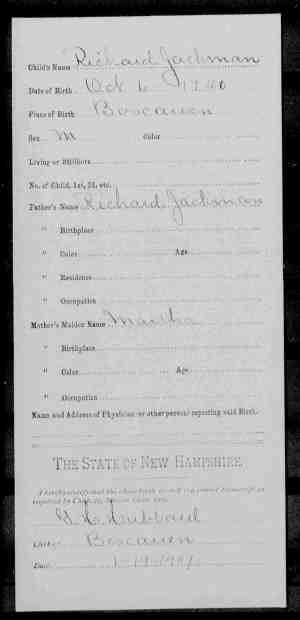 Child's Name Richard Jackman
Date of Birth Oct 6 1740
Place of Birth Boscawen
Sex M Color
Living or Stillborn
No. of Child, 1st, 2d, etc.
Father's Name Richard Jackman
" Birthplace
" Color Age
" Residence
" Occupation
Mother's Maiden Name Martha
" Birthplace
" Color Age
" Occupation
Name and Address of Physician or other person reporting said Birth.
THE STATE OF NEW HAMPSHIRE.
I hereby certify that the above birth record is a correct transcript as
required by
Hubbard
Clerk of Boscawen
Date 1-19-1907